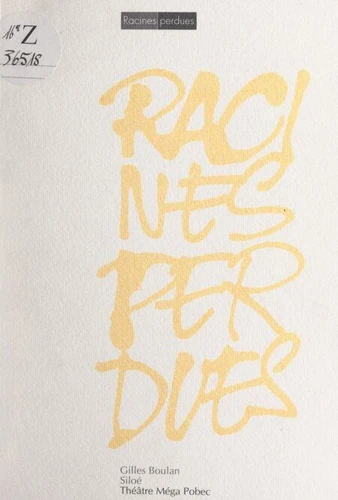 Racines perdues
16° Z
36518
RACI
NES
PER
DUES
Gilles Boulan
Siloé
Théâtre Méga Pobec